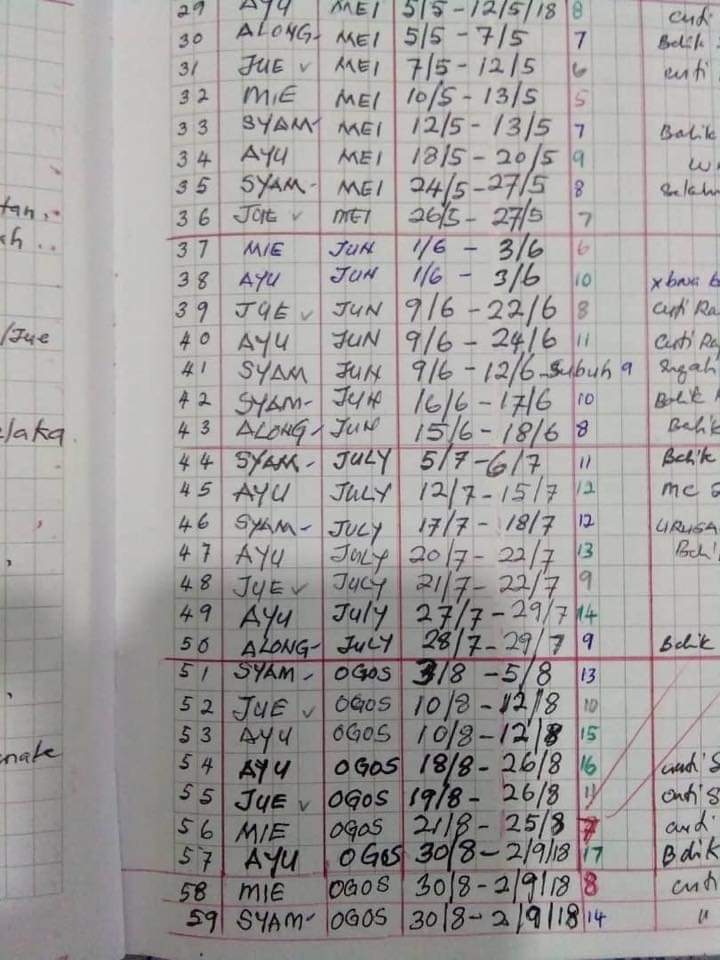 29 AYU MEI 5/5 - 12/5/18 8 cuti
30 ALONG- MEI 5/5 - 7/5 7 Balik
31 JUE ✓ MEI 7/5 - 12/5 6 cuti
32 MIE MEI 10/5 - 13/5 5
33 SYAM- MEI 12/5 - 13/5 7 Balik
34 AYU MEI 18/5 - 20/5 9
35 SYAM- MEI 24/5 - 27/5 8
tan,
36 JUE ✓ MEI 26/5 - 27/5 7
ah ..
37 MIE JUN 1/6 - 3/6 6
38 AYU JUN 1/6 - 3/6 10
39 JUE ✓ JUN 9/6 - 22/6 8 Cuti Ra
/Jue
40 AYU JUN 9/6 - 24/6 11 Cuti Ra
41 SYAM JUN 9/6 - 12/6-Subuh 9
42 SYAM- JUN 16/6 - 17/6 10 Balik
43 ALONG- JUN 15/6 - 18/6 8 Balik
elaka
44 SYAM- JULY 5/7 - 6/7 11 Balik
45 AYU JULY 12/7 - 15/7 12 MC
46 SYAM- JULY 17/7 - 18/7 12 URUSA
47 AYU JULY 20/7 - 22/7 13
48 JUE ✓ JULY 21/7 - 22/7 9
49 AYU JULY 27/7 - 29/7 14
50 ALONG- JULY 28/7 - 29/7 9 Balik
51 SYAM- OGOS 3/8 - 5/8 13
52 JUE ✓ OGOS 10/8 - 12/8 10
53 AYU OGOS 10/8 - 12/8 15
54 AYU OGOS 18/8 - 26/8 16 cuti S
55 JUE ✓ OGOS 19/8 - 26/8 11 Cuti S
56 MIE OGOS 21/8 - 25/8 7 cuti
57 AYU OGOS 30/8 - 2/9/18 17 Balik
58 MIE OGOS 30/8 - 2/9/18 8 cuti
59 SYAM- OGOS 30/8 - 2/9/18 14 "